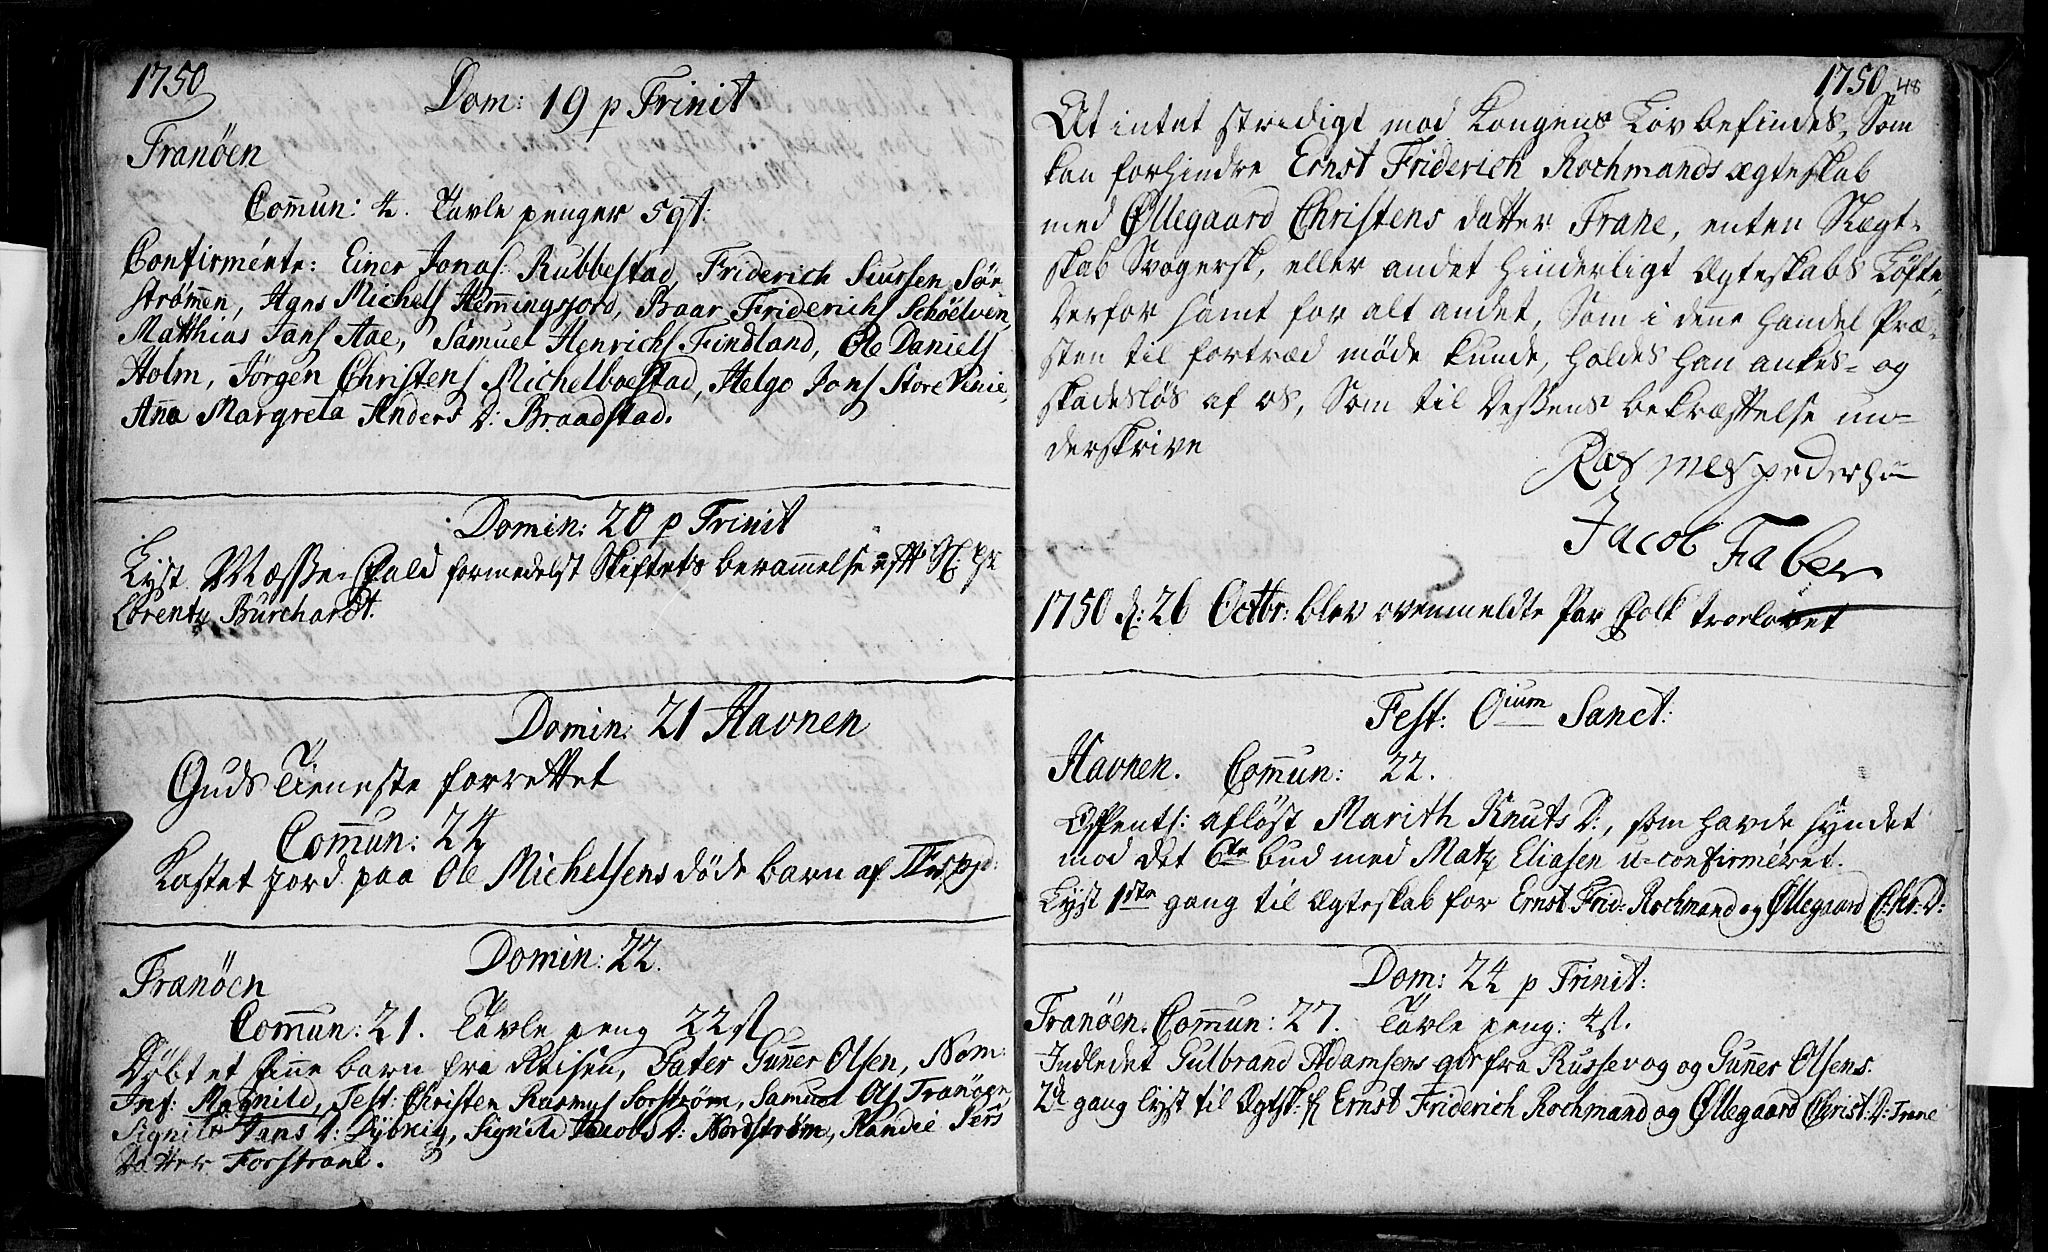 1750
Dom: 19 p Trinit
Tranöen
Com̄un: 4. Tavle penger 5 qt:
Confirmérte: Einer Jonas: Rubbestad, Friderich Siursen Sör
strøm̄en, Hans Michels Hem̄ingsjord, Baar Friderichs Schöelven,
Matthias Jans Aae, Samuel Henrichs Findland, Ole Daniels
Holm, Jörgen Christens Michelboestad, Helge Jons Store Vinie,
An̄a Margreta Anders D: Braadstad.
Domin: 20 p Trinit
Lyst Mæsse-Fald formedelst Skiftets beram̄else eft Sl. Hr
Lorentz Burchardt.
Domin: 21 Havnen
Guds Tieneste forrettet
Com̄un: 24
Kastet jord paa Ole Michelsens døde barn af
Domin: 22.
Tranöen
Com̄un: 21. Tavle peng 22 st
Döbt et Fin̄e barn fra Reisen, Pater Gun̄er Olsen, Nom:
Inf: Magnild, Test: Christen Rasmus Sorstrøm, Samuel Ols Tranöen,
Signild Jans D: Dybvig, Signild Jacobs D: Nordstrøm, Randie Iers
Datter Forstrand.
1750 48
At intet stridigt mod Kongens Lov befindes, Som
kan forhindre Ernst Friderich Rochmands ægteskab
med Øllegaard Christens datter Trane, enten Slegt-
skab Svogersk, eller andet hinderligt Ægteskabs Löfte,
derfor samt for alt andet, Som i den̄e handel Præ-
sten til fortræd møde kunde, holdes han ankes- og
skadeslös af os, Som til dessens bekræftelse un-
derskrive
Rasmes pedersen
Jacob Faber
1750 d: 26 Octbr: blev ovenmeldte Par Folk trolovet
Fest: Oium Sanct:
Havnen. Com̄un: 22.
Offentl: aflöst Marith Knuts D:, som havde syndet
mod det 6te bud med Matz Eliasen u-confirméret.
Lyst 1ste gang til Ægteskab for Ernst Frid: Rochmand og Øllegaard Chr: D:
Dom: 24 p Trinit:
Tranöen. Com̄un: 27. Tavle peng: 4 st.
Indledet Gulbrand Adamsens qv fra Russevog og Gun̄er Olsens.
2d gang lyst til Ægtsk: f Ernst Friderich Rochmand og Øllegaard Christ: D: Trane